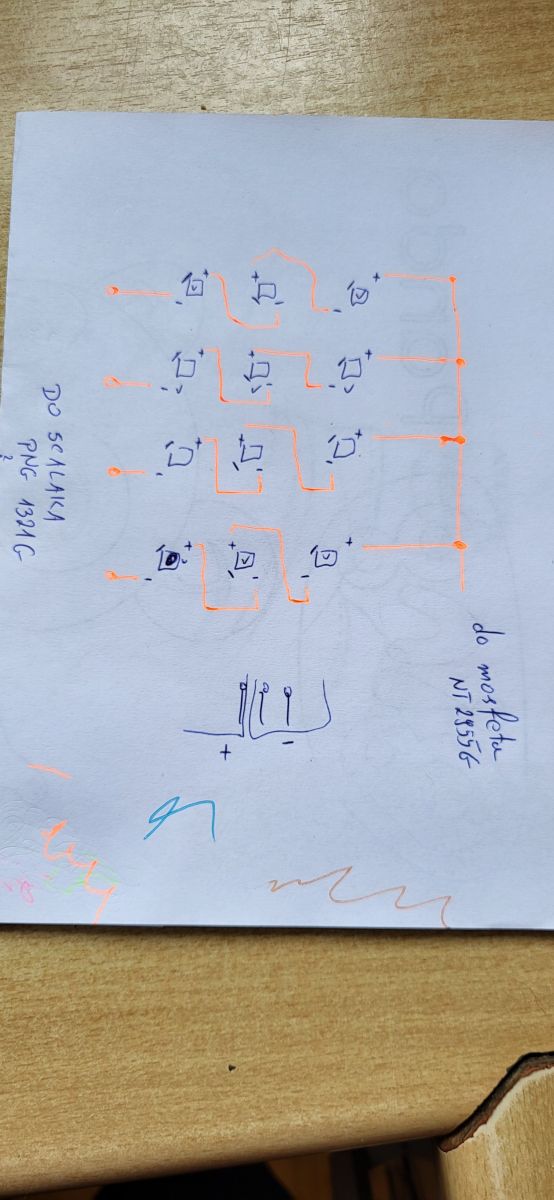 do mosfeta
NT 2955G
DO SCALAKA
PNG 1321G
?
+
-